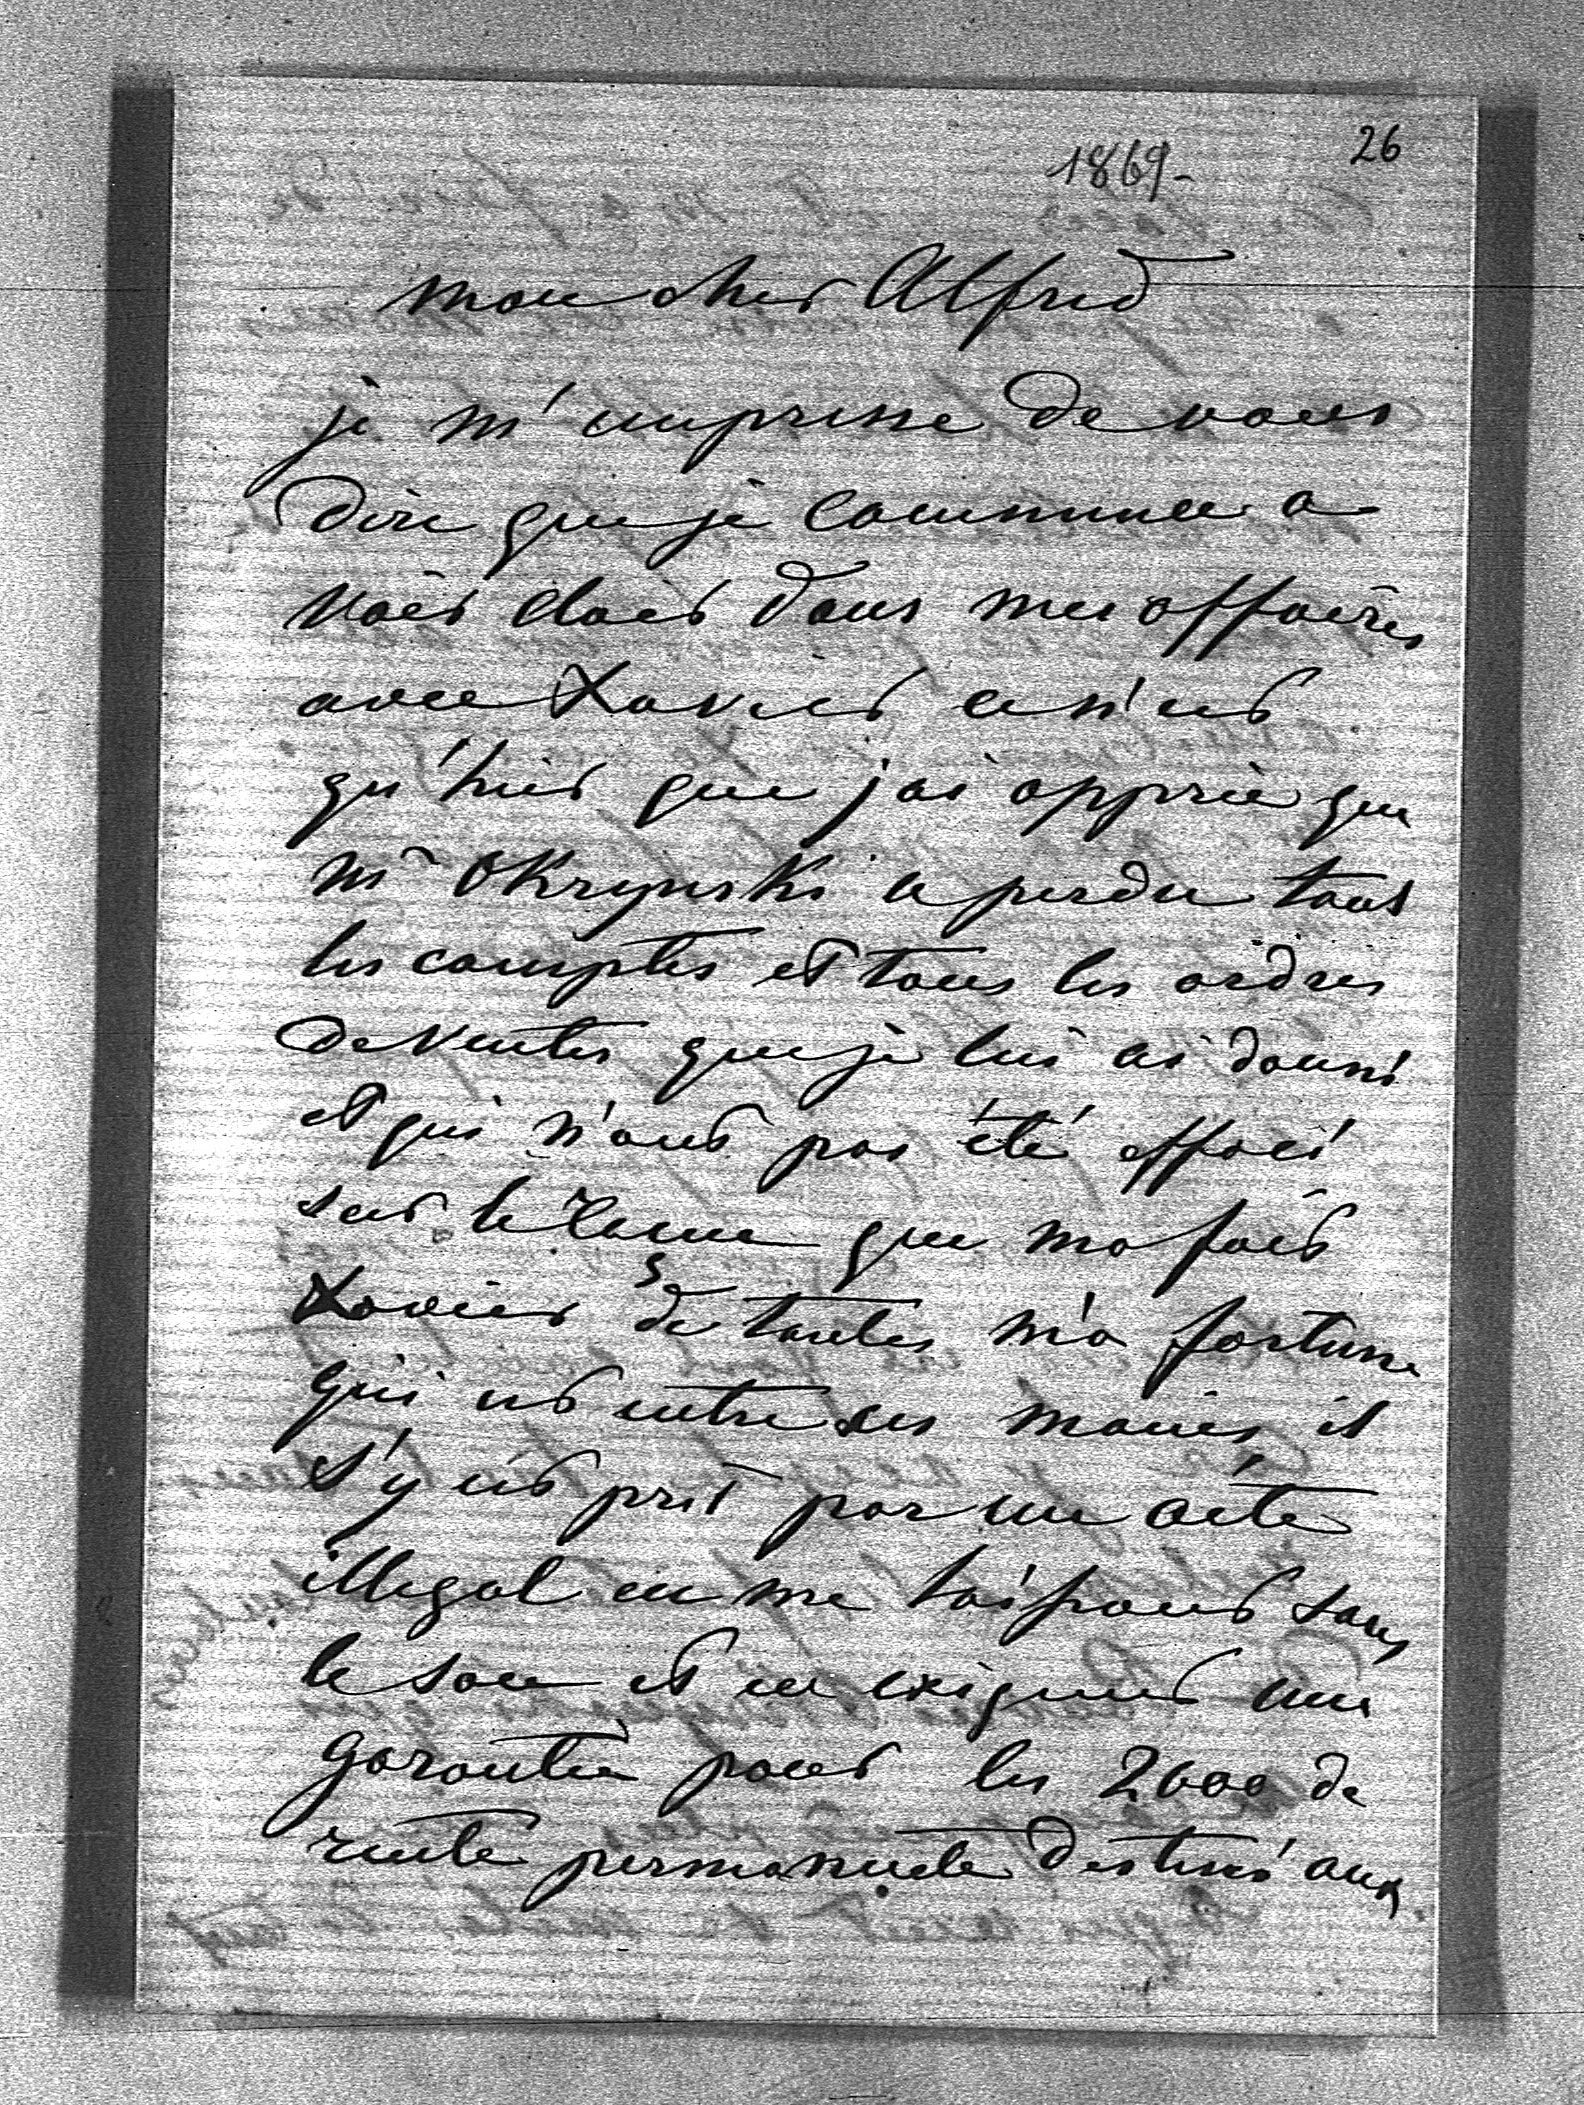 26
1869-
mon cher Alfred
je m'empresse de vous
dire que je commence a
voir clair dans mes affaires
avec Xavier ce n'est
qu'hier que j'ai appris que
mr Okrynski a perdu tous
les comptes et tous les ordres
de ventes que je lui ai donné
et qui n'ont pas été effacé
sur le que ma fait
Xavier de toutes ma fortune
qui est entre ses mains, il
s'y est prit par un acte
illegal en me laissant sans
le sou et en exigeant une
garantie pour les 2600 de
rente permanente destiné aux